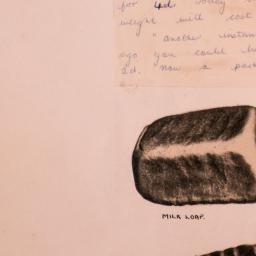 for 4d. today
weight will cost
"another instan
ago you could bu
2d. now a pack
MILK LOAF.